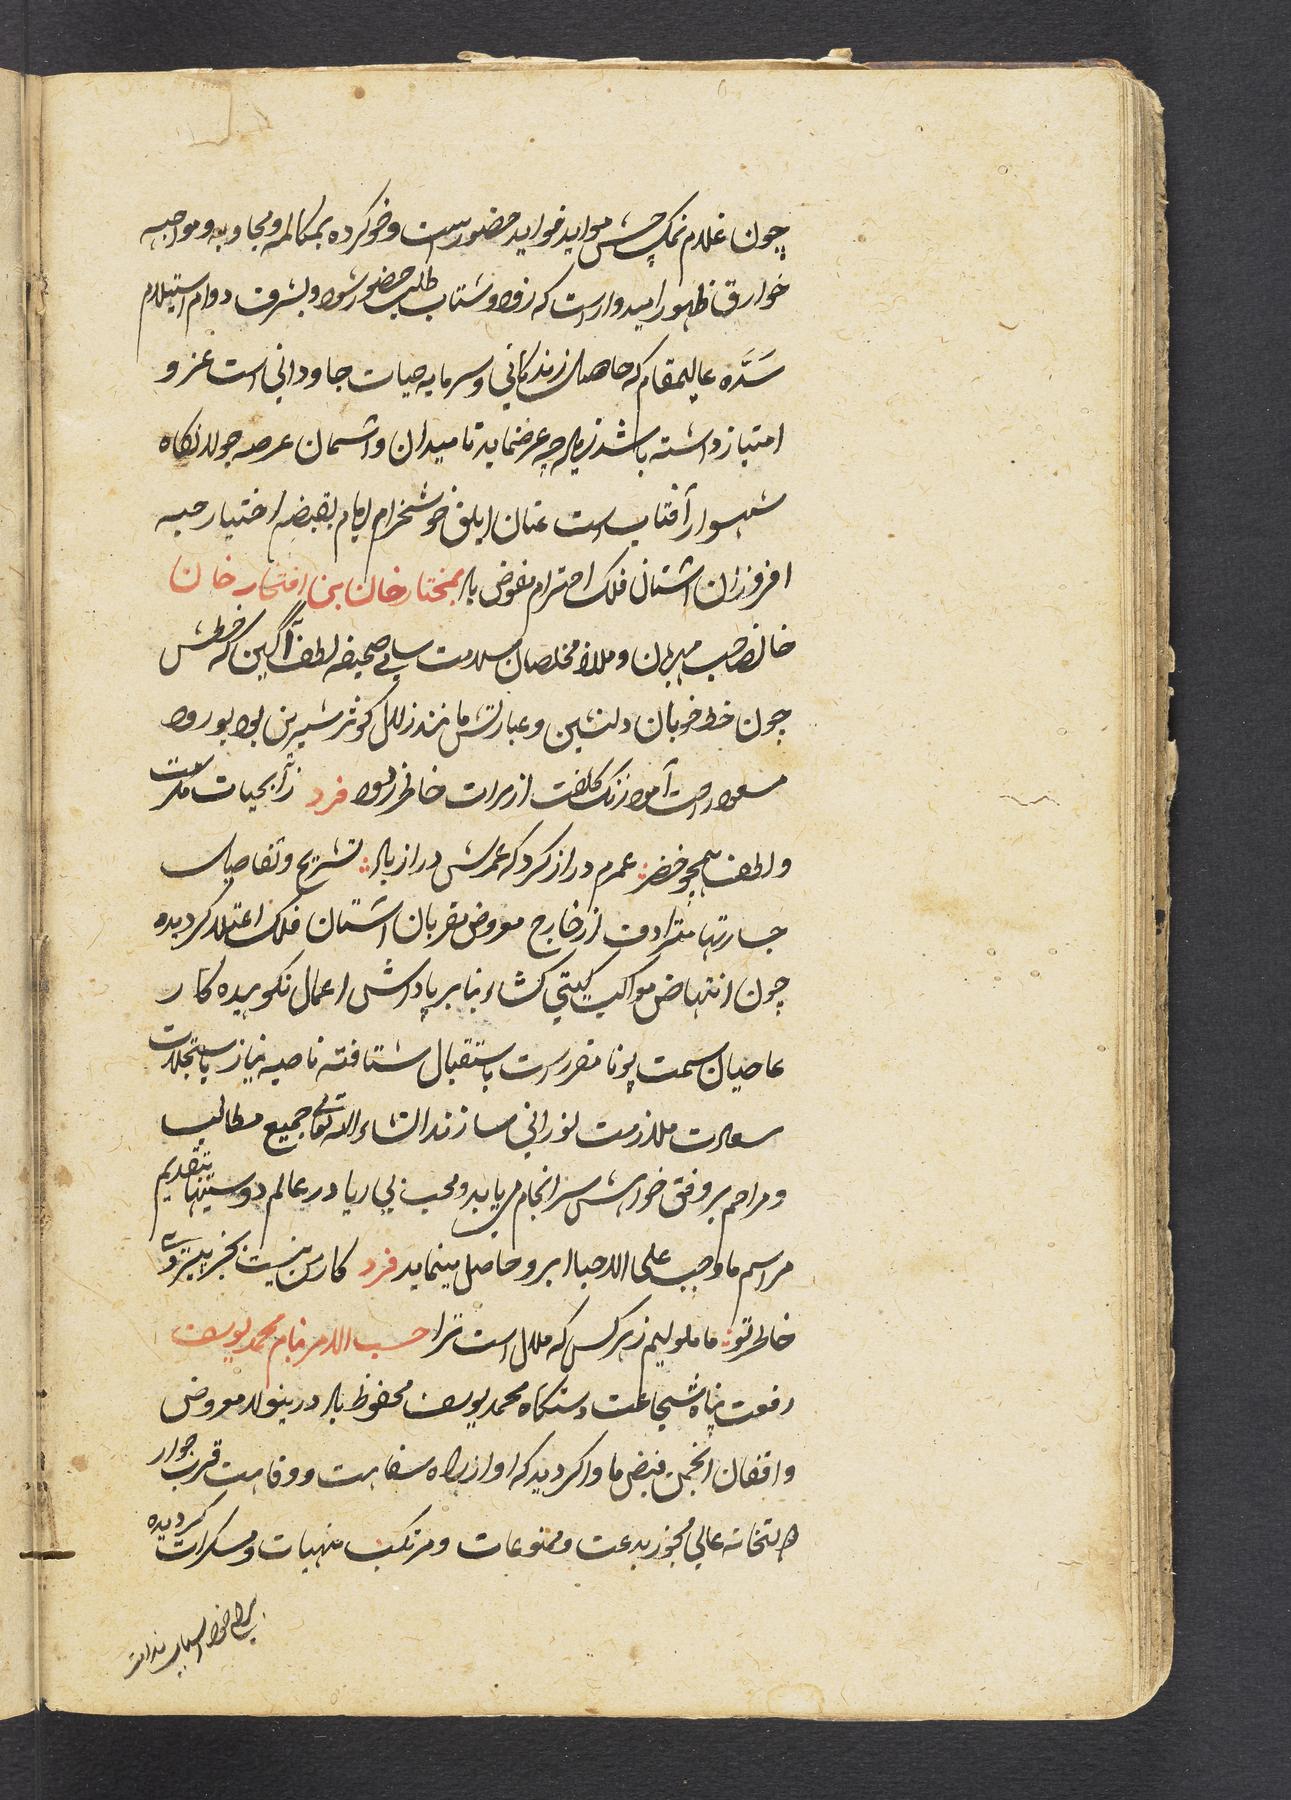 چون غلام نمک چش مواید فواید حضور است و خو کرده بمکالمه و مجاوبه و مواجهه
خوارق ظهور امیدوار است که زود و شتاب طلب حضور شود و بشرف دوام استیلام
سده عالیمقام که حاصل زندکانی و سرمایه حیات جاودانی است عز و
امتیاز داشته باشد زیاده چه عرض نماید تا میدان و اشمان عرصه جولانکاه
شهسوار آفتاب است عنان ابلق خوشخرام ایام بقبضه اختیار جبهه
افروزان اشتان فلک احترام مفوض باد بمختار خان بن افتخار خان
خانصاحب مهربان و ملاذ مخلصان سلامت سامی صحیفه لطف آگین که خطش
چون خط خوبان دلنشین و عبارتش مانند زلال کوثر شیرین بود بورود
مسعود راحت آمود زنک کلفت از مرات خاطر ربود فرد زآبحیات مکرمت
و لطف همچو خضر عمرم دراز کرد که عمرش دراز باد تشریح و تفاصیل
جسارتها مترادف از خارج معروض مقربان اشتان فلک اعتلا کردیده
چون انتهاض مواکب کیتی کشاء بنابر پاداش اعمال نکوهیده کار
عاصیان سمت پونا مقرر است باستقبال شتافته ناصیه نیاز باستجلاب
سعادت ملازمت نورانی سازند انشاء الله تعالی جمیع مطالب
و مراحم بر وفق خواهش سرانجام می یابد و محب بی ریا در عالم دوستیها بتقدیم
مراسم ما وجب علی الاحبا ابرو حاصل مینماید فرد کار من نیست بجز
خاطر تو ما ملولیم ز هر کس که ملال است ترا حسب الامر بنام محمد یوسف
رفعت پناه شجاعت دستکاه محمد یوسف محفوظ باد درینولا معروض
واقفان انجمن فیض ماوا کردید که او از راه سفاهت و وقاحت قرب جوار
دولتخانه عالی مجوز بدعت و ممنوعات و مرتکب منهیات و مسکرات کردیده